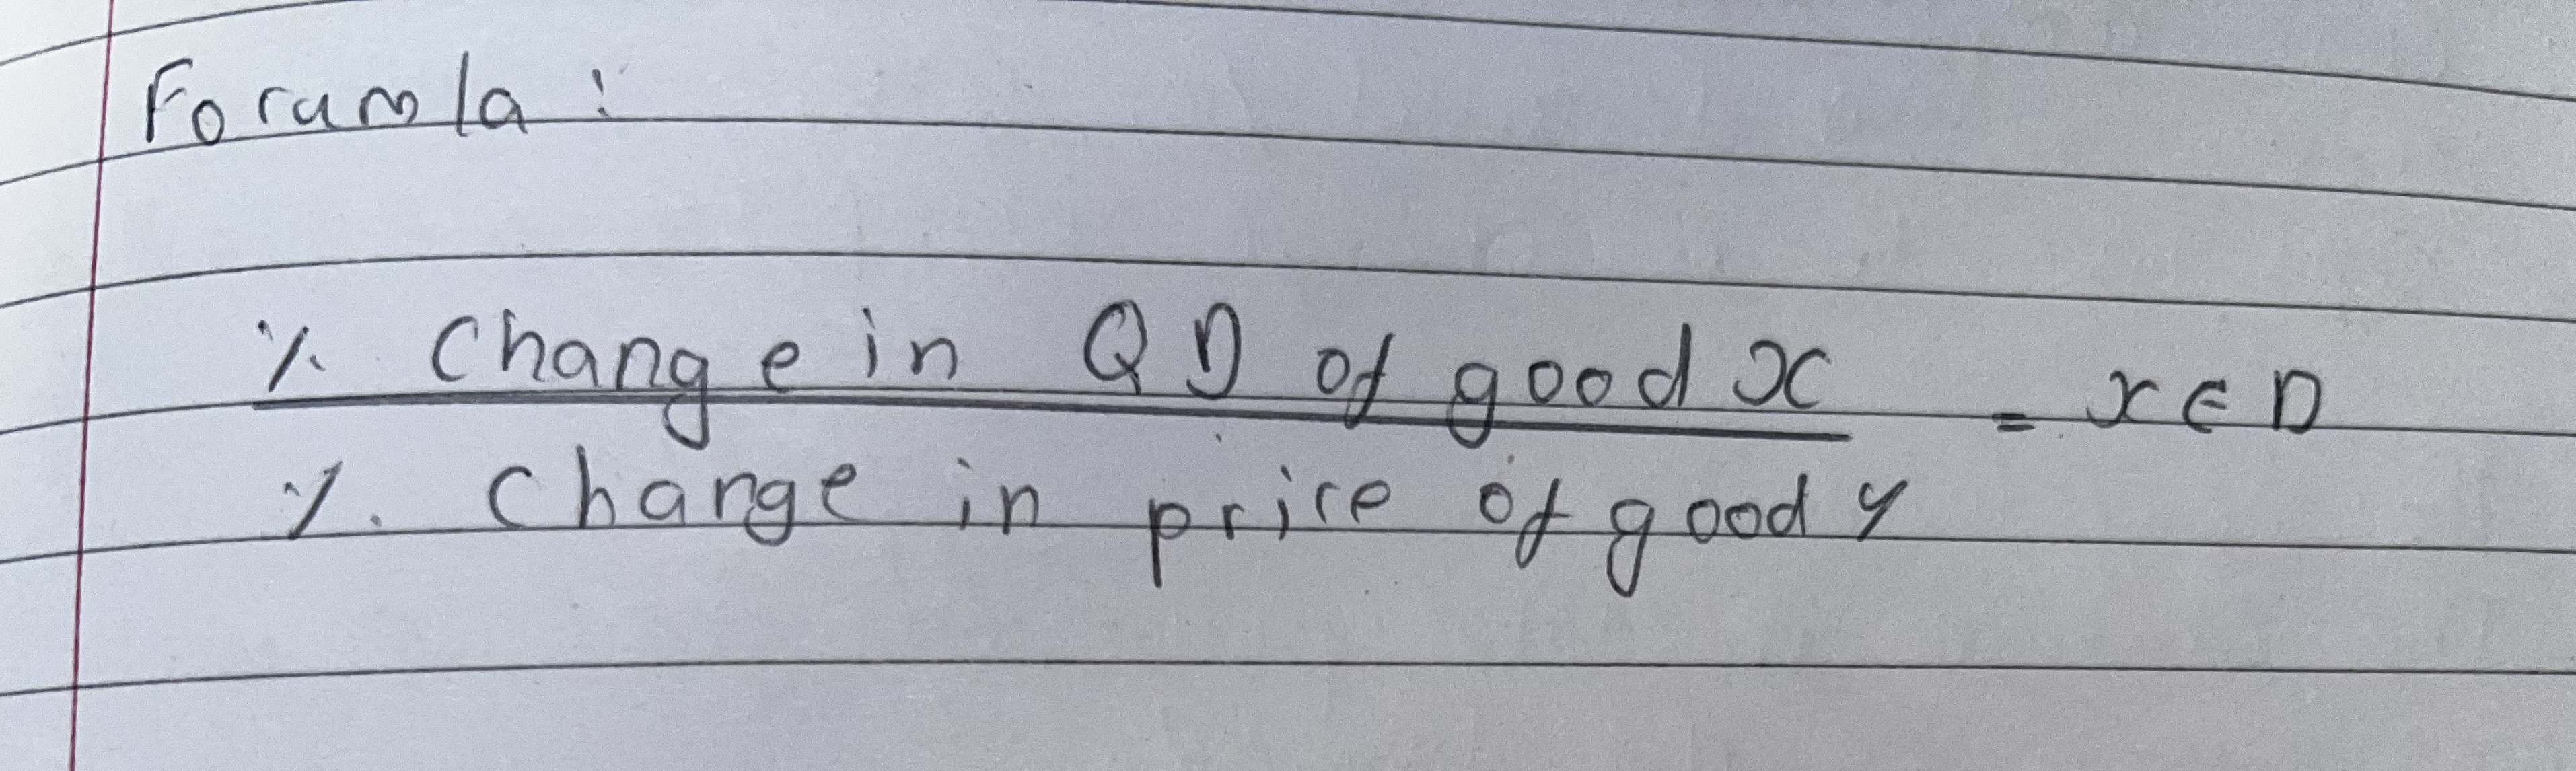 Forumla :
% Change in QD of good x = xED
% Change in price of good y